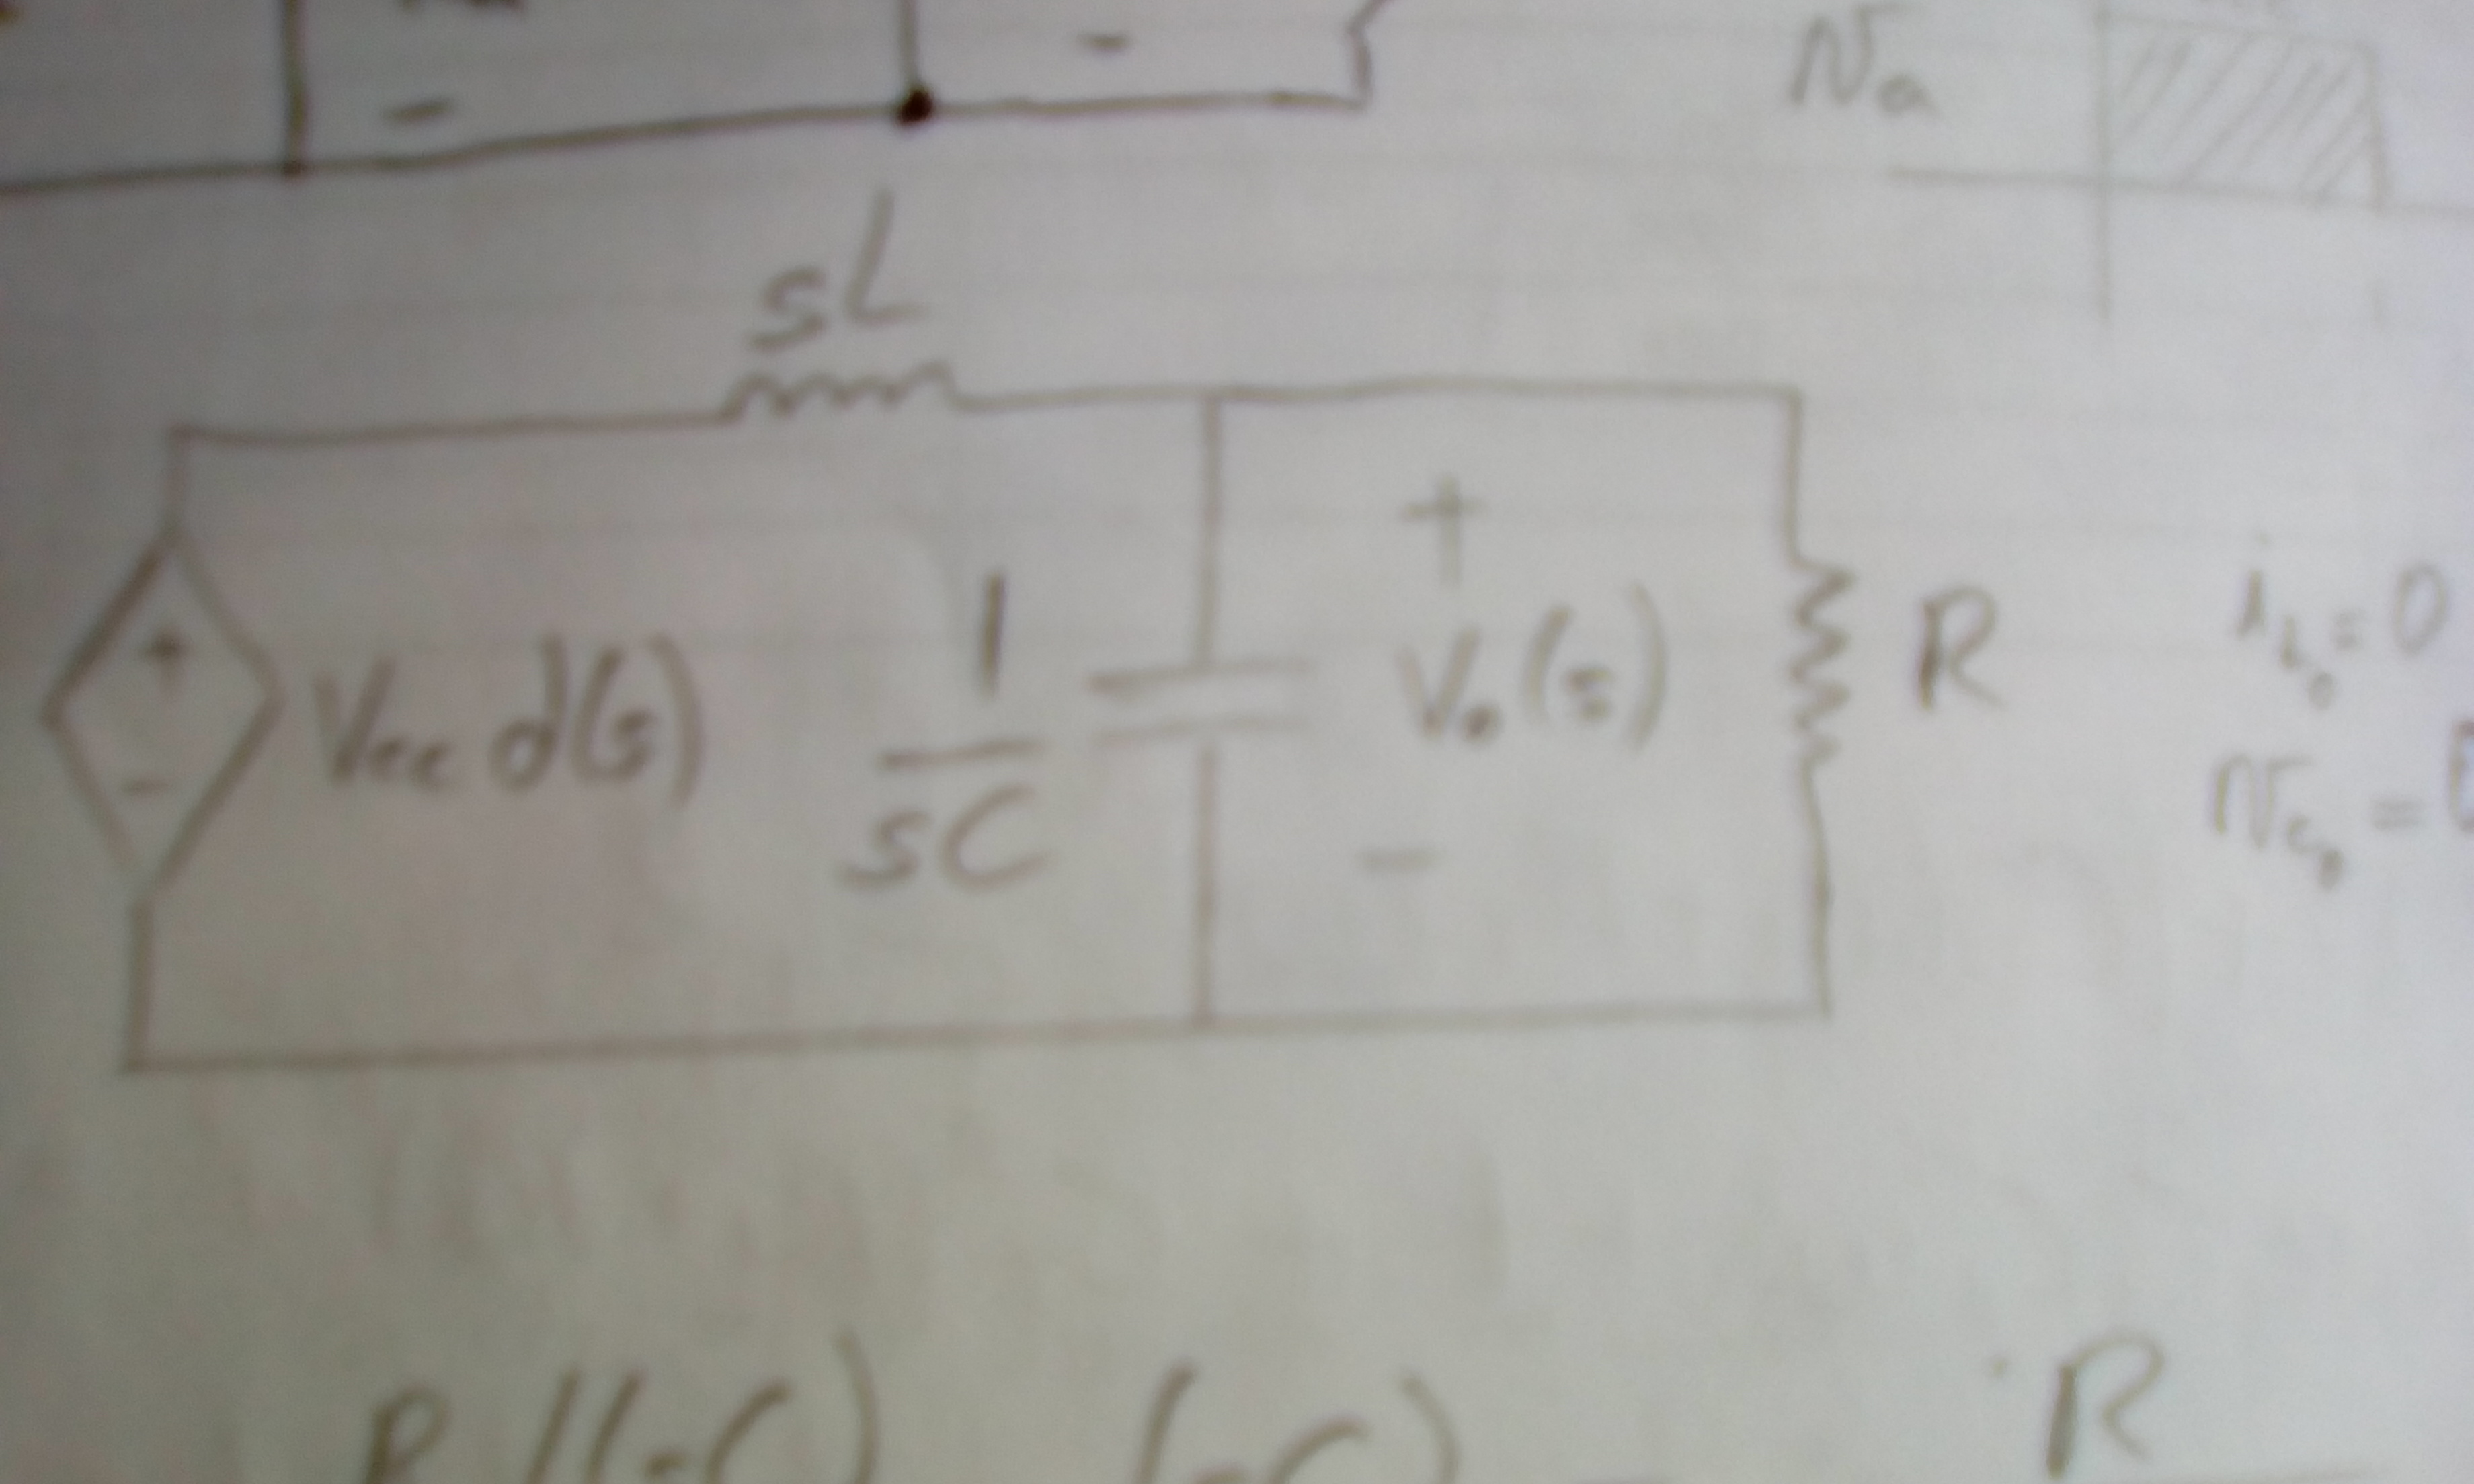 -
-
Na
sL
+
-
Vcc d(s)
1
sC
+
Vo(s)
-
R
iL0=0
Nc0 =
R